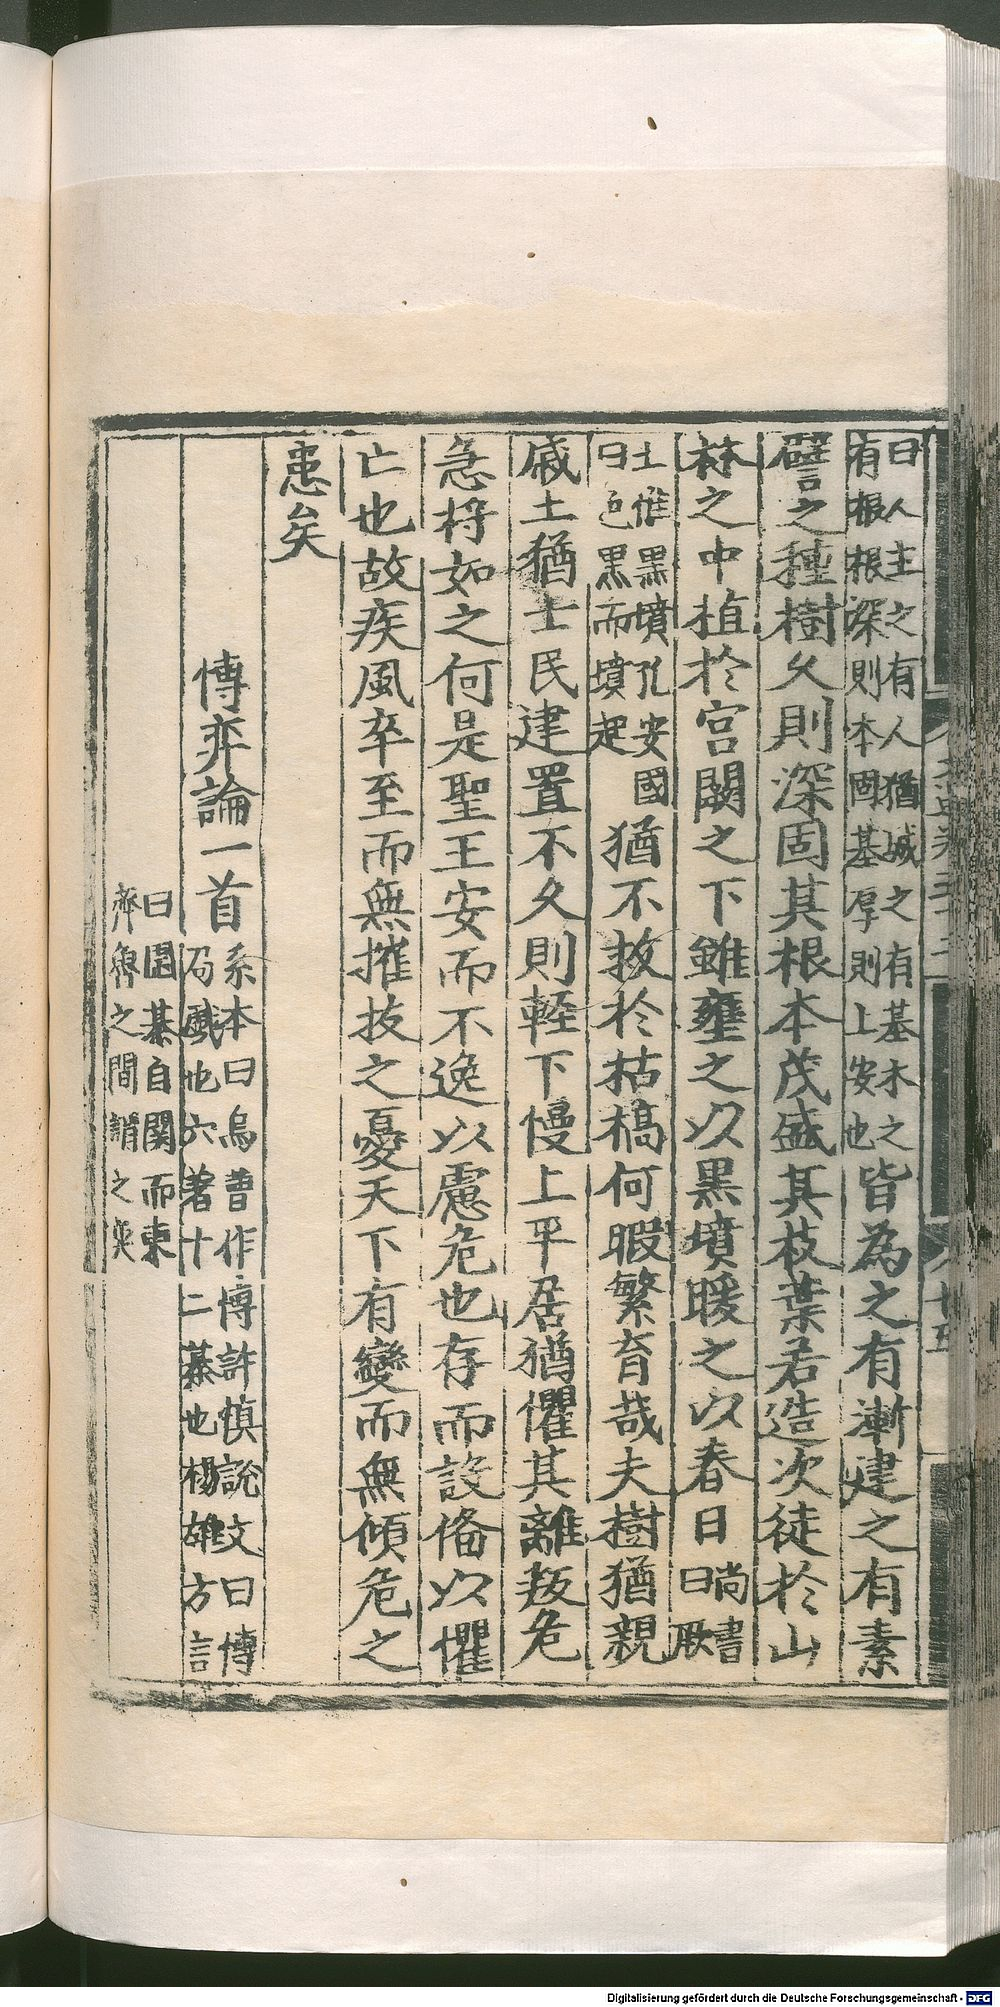 曰人主之有人猶城之有基木之
有根根深則本固基厚則上安也
皆為之有漸建之有素
譬之種樹久則深固其根本茂盛其枝葉若造次徒於山
林之中植於宮闕之下雖壅之以黑墳暖之以春日
尚書
曰厥
土惟黑墳孔安國
曰色黑而墳起
猶不救於枯槁何暇繁育哉夫樹猶親
戚土猶士民建置不久則輕下慢上平居猶懼其離叛危
急將如之何是聖王安而不逸以慮危也存而設俻以懼
亡也故疾風卒至而無摧拔之憂天下有變而無傾危之
患矣
博弈論一首
系本曰烏曹作博許慎說文曰博
局戲也六箸十二棊也楊雄方言
曰圍棊自關而東
齊魯之間謂之弈
Digitalisierung gefördert durch die Deutsche Forschungsgemeinschaft - DFG